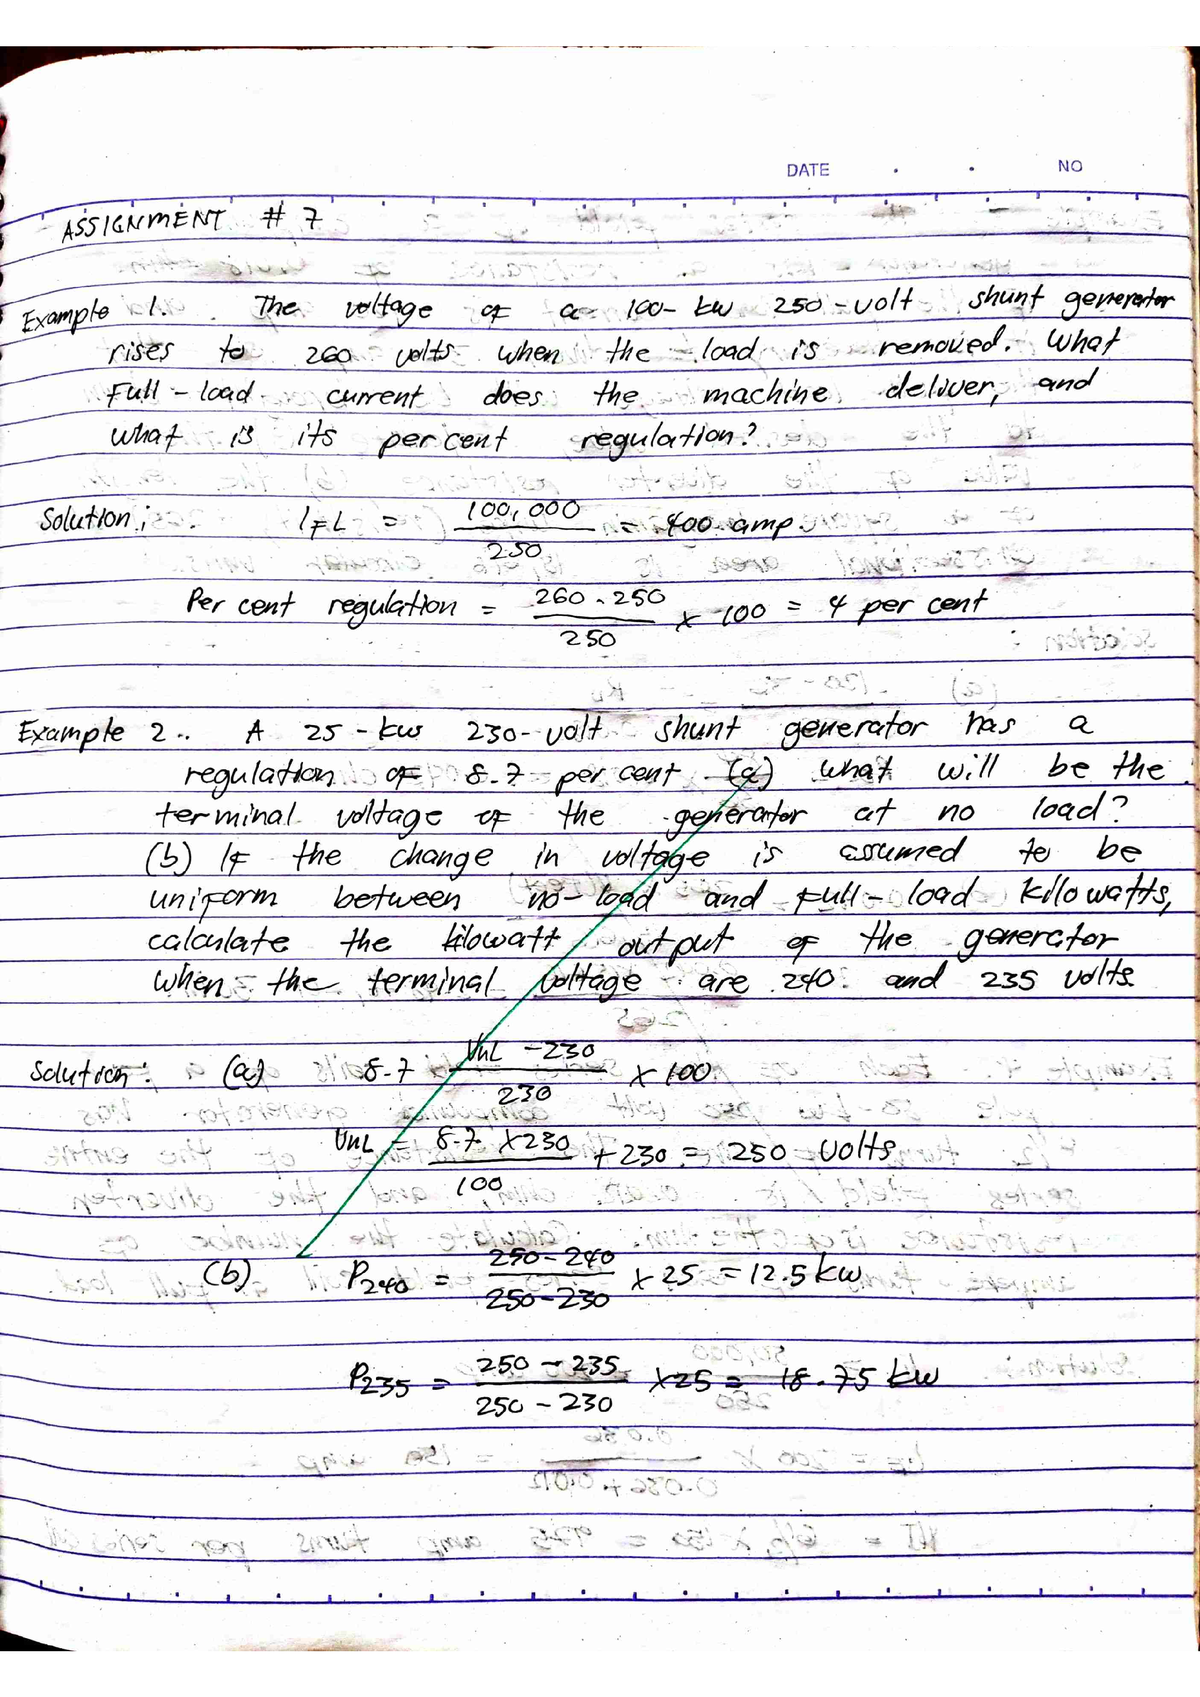 DATE . . NO
ASSIGNMENT # 7
Example 1. The voltage of a 100-kw 250-volt shunt generator
rises to 260 volts when the load is removed. What
Full-load current does the machine deliver, and
what is its per cent regulation?
Solution; IFL = 100,000 / 250 = 400 amp.
Per cent regulation = 260-250 / 250 x 100 = 4 per cent
Example 2.. A 25-kw 230-volt shunt generator has a
regulation of 8.7 per cent (a) what will be the
terminal voltage of the generator at no load?
(b) If the change in voltage is assumed to be
uniform between no-load and full-load kilowatts,
calculate the kilowatt output of the generator
when the terminal voltage are 240 and 235 volts
Solution: (a) 8.7 VnL - 230 / 230 x 100
VnL = 8.7 x 230 / 100 + 230 = 250 volts
(b) P240 = 250-240 / 250-230 x 25 = 12.5 kw
P235 = 250-235 / 250-230 x 25 = 18.75 kw